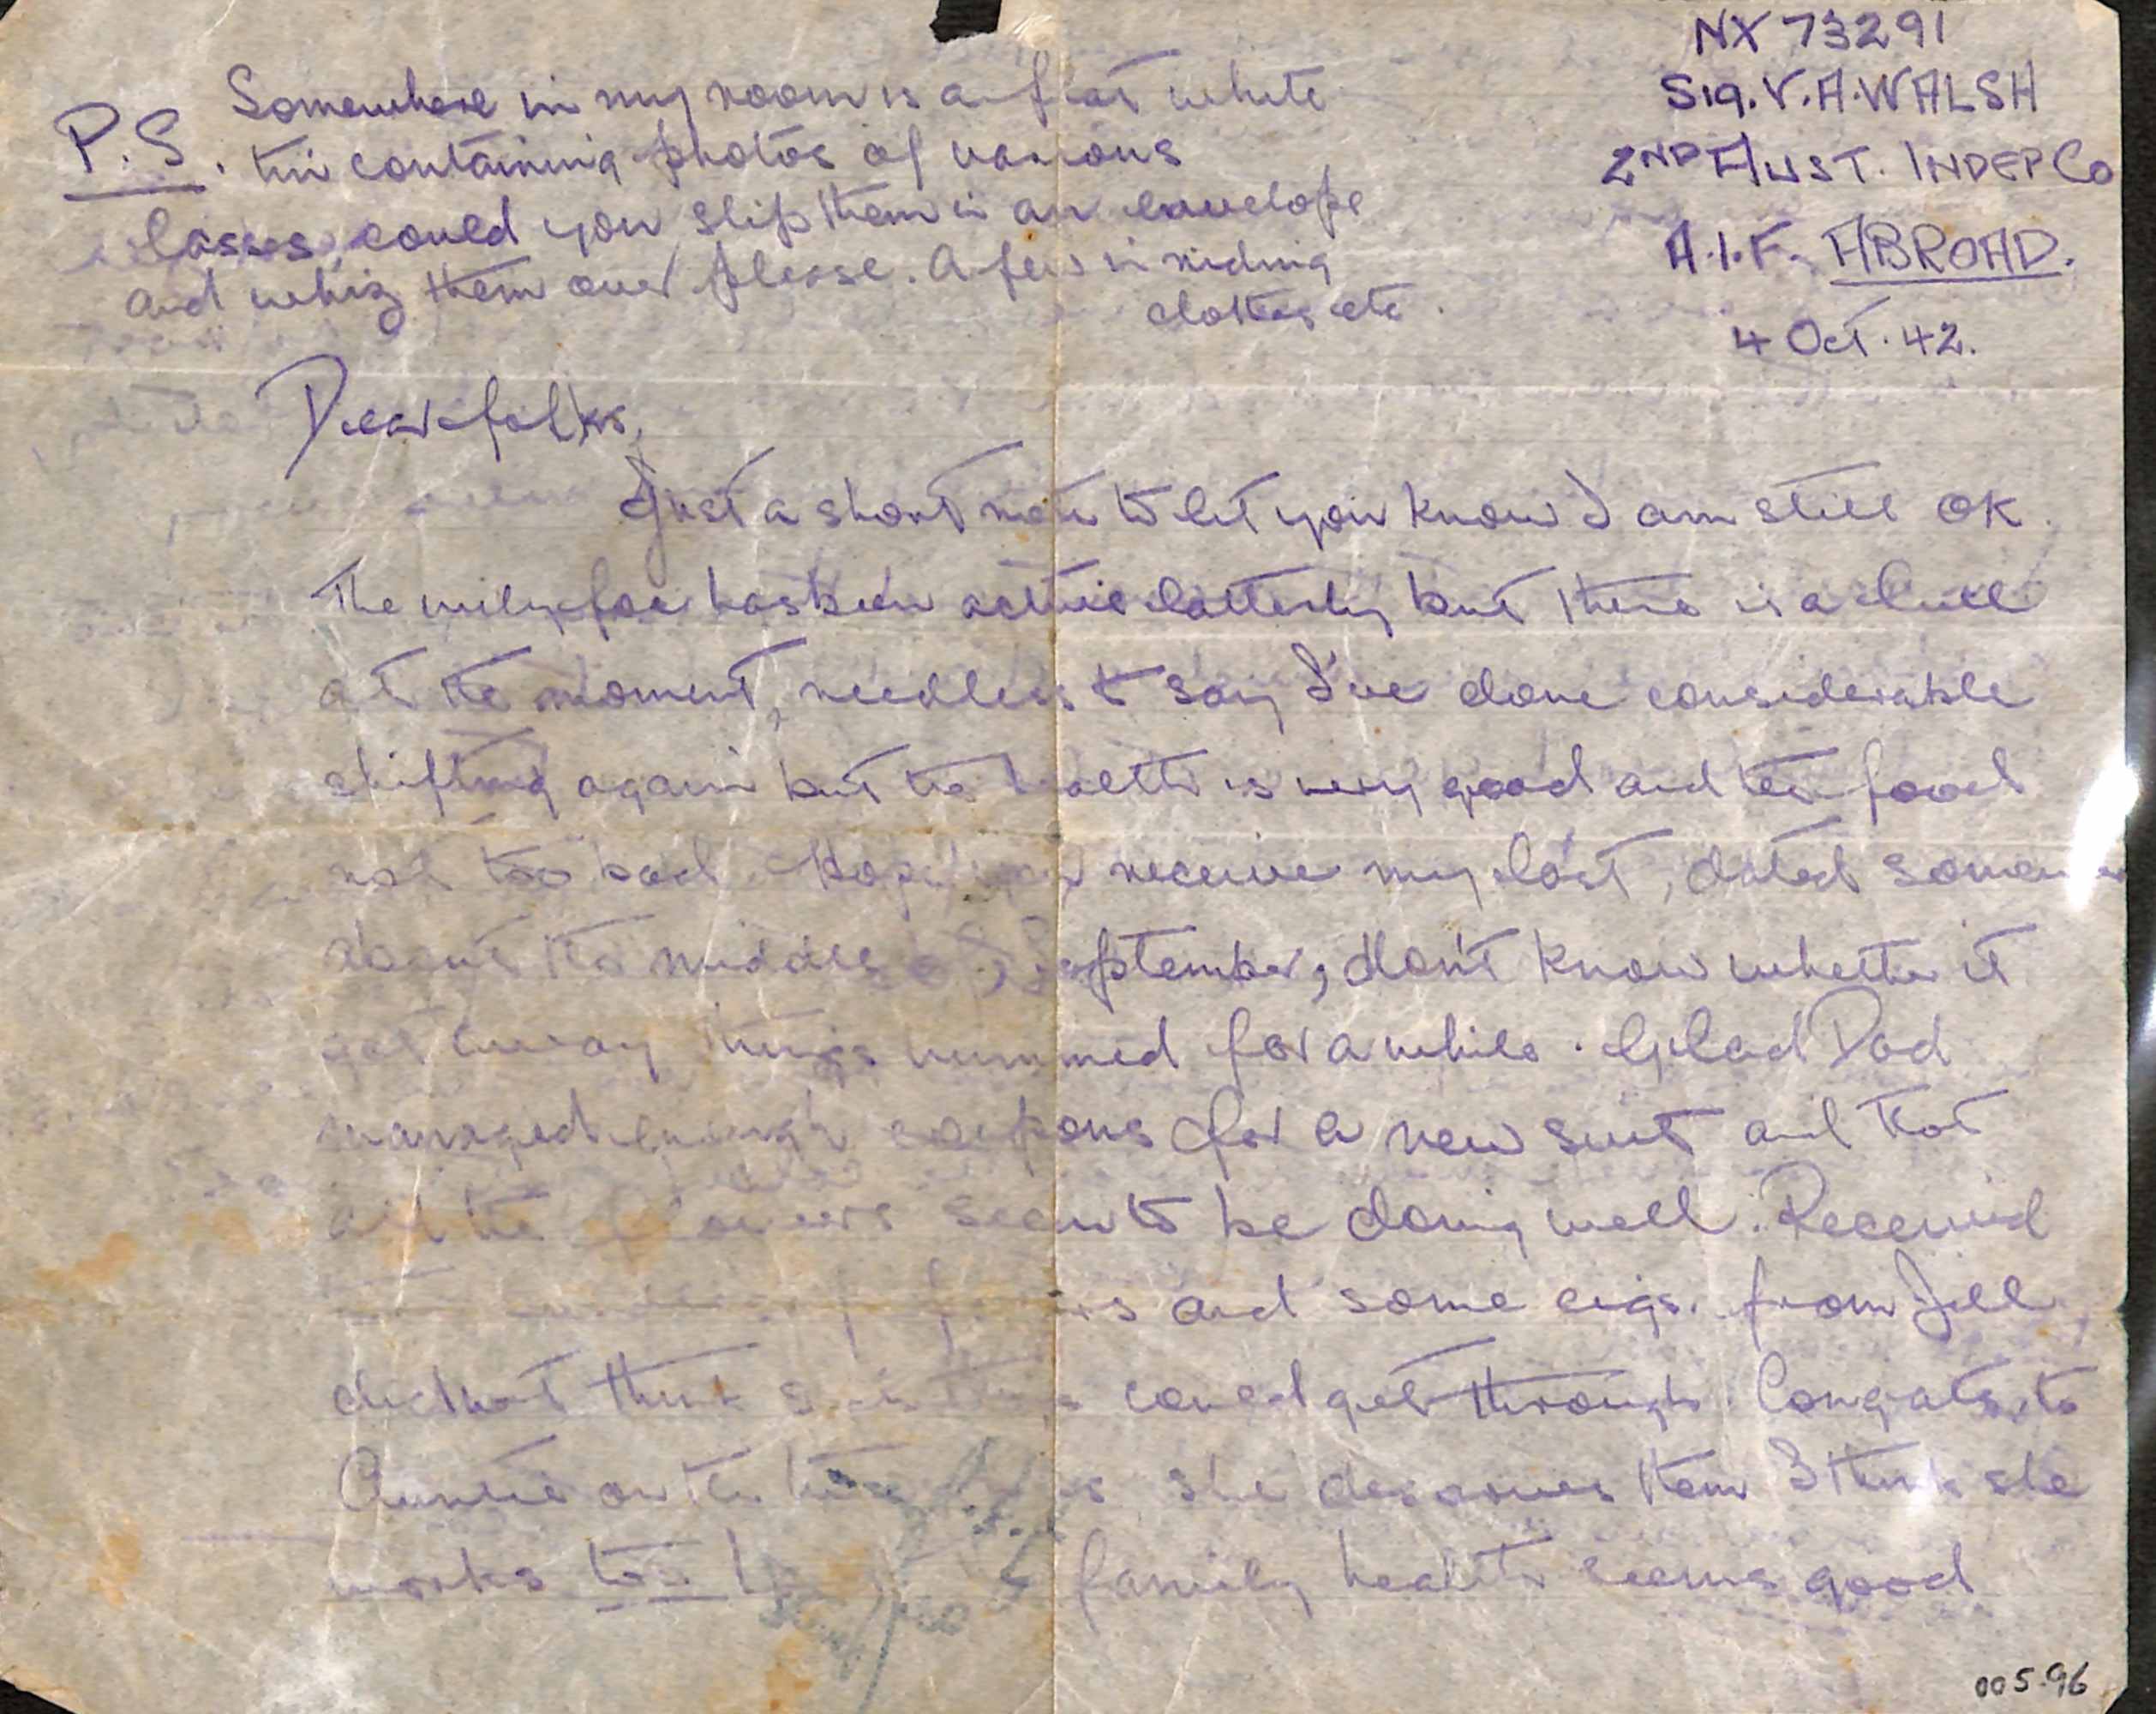 NX 73291
Sig. V. A. WALSH
2ND AUST. INDEP Co
A.I.F. ABROAD.
4 Oct. 42.
P.S. Somewhere in my room is a flat white
tin containing photos of various
lasses, could you slip them in an envelope
and whiz them over please. A few in riding
clothes etc.
Dear folks,
Just a short note to let you know I am still OK.
The wily foe has been active latterly but there is a lull
at the moment, needless to say I've done considerable
shifting again but the health is very good and the food
not too bad. Hope you receive my last, dated
about the middle of September, don't know whether it
got away things hummed for a while. Glad Dad
managed enough coupons for a new suit and that
all the flowers seem to be doing well. Received
and some cigs. from Jill
didn't think could get through. Congrats to
Auntie on the she deserves them I think she
works too family health seems good
005.96